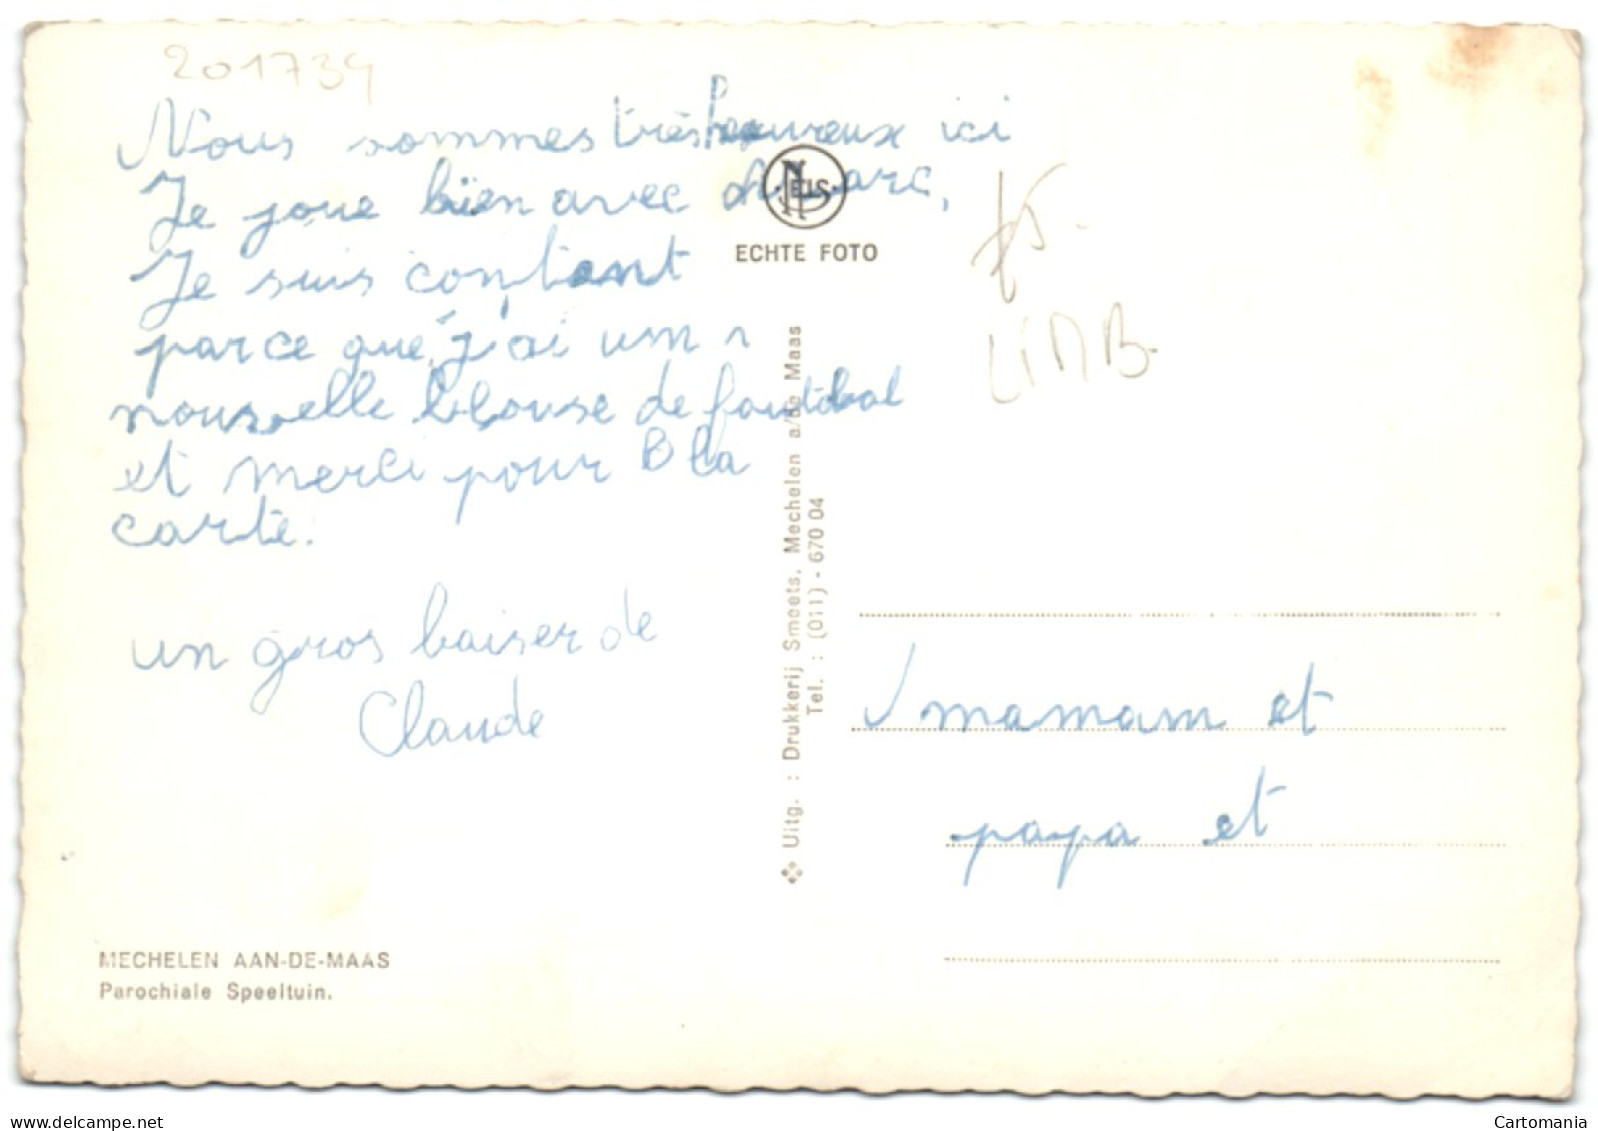 201734
Nous sommes très heureux ici
Je joue bien avec Marc,
Je suis contant
parce que j'ai un
nouvelle blouse de foutbal
et merci pour la
carte.
un gros baiser de
Claude
NELS
ECHTE FOTO
75.
LIMB.
Uitg. : Drukkerij Smeets, Mechelen a/de Maas
Tel. : (011) - 670 04
mamam et
papa et
MECHELEN AAN-DE-MAAS
Parochiale Speeltuin.
Cartomania